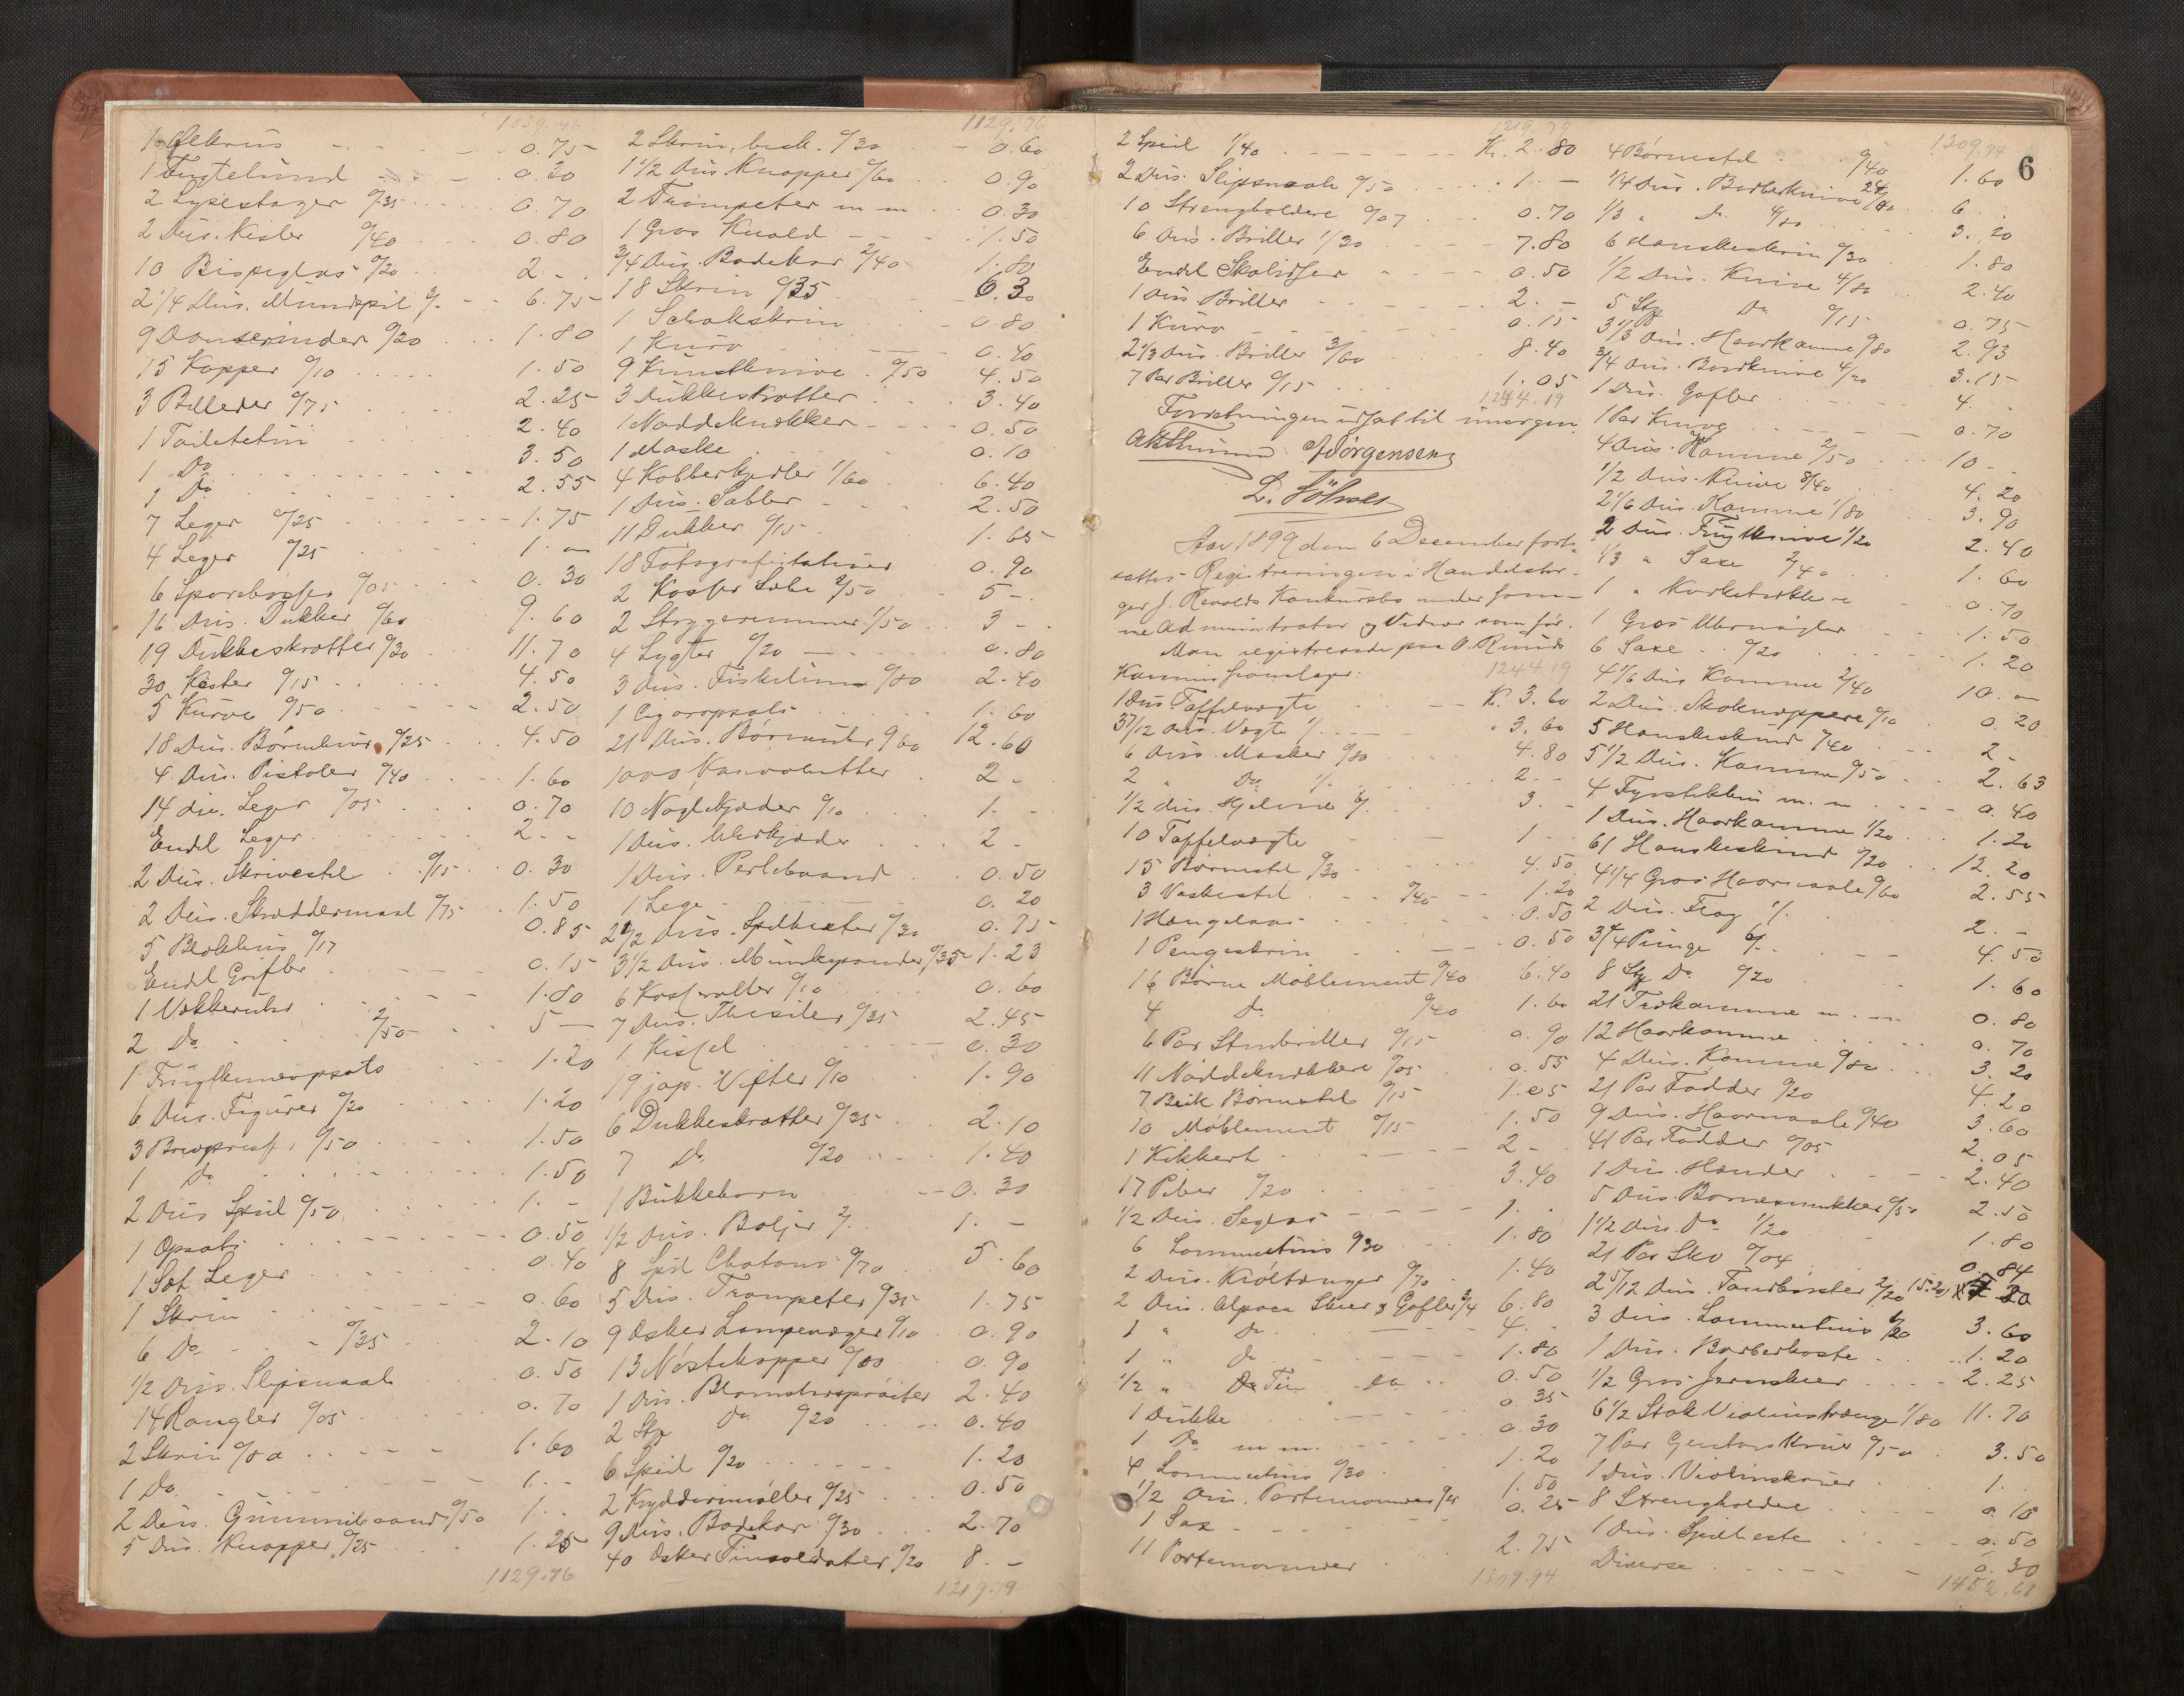 1039.46
1 Ølkrus 0.75
1 Frugtskind 0.30
2 Lysestager 0/35 0.70
2 Dus. Kister 0/40 0.80
10 Bispeglas 0/20 2 -
2 1/4 Dus. Mundspil 3/- 6.75
9 Danserinder 0/20 1.80
15 Kopper 0/10 1.50
3 Billeder 0/75 2.25
1 Toiletetui 2.40
1 Do 3.50
1 Do 2.55
7 Leger 0/25 1.75
4 Leger 0/25 1. -
6 Sparebøsser 0/05 0.30
16 Dus. Dukker 0/60 9.60
19 Dukkeskrotter 0/30 11.70
30 Kister 0/15 4.50
5 Kurve 0/50 2.50
18 Dus. Børnekrus 0/25 4.50
4 Dus. Pistoler 0/40 1.60
14 div. Leger 0/05 0.70
Endl Leger 2 - -
2 Dus. Skrivestel 0/15 0.30
2 Dus. Skræddermaal 0/75 1.50
5 Blækhus 0/17 0.85
Endl Grifler 0.15
1 Vækkeruhr 1.80
2 Do 2/50 5 -
1 Frugtkniveopsats 1.20
6 Dus. Figurer 0/20 1.20
3 Brevpress 0/50 1.50
1 Do 1.50
2 Dus Speil 0/50 1. -
1 Opsats 0.50
1 Sæt Leger 0.40
1 Skrin 0.60
6 Do 0/35 2.10
1/2 Dus. Slipsnaale 0.50
14 Rangler 0/05 0.70
2 Skrin 0/80 1.60
1 Do 1. -
2 Dus. Gummibaand 0/50 1.
5 Dus. Knapper 0/25 1.25
1129.76
1129.76
2 Skrin, besk. 0/30 0.60
1 1/2 Dus Knapper 0/60 0.90
2 Trompeter m m 0.30
1 Gros Knald 1.50
3/4 Dus. Badekar 2/40 1.80
18 Skrin 0/35 6.30
1 Schakskrin 0.80
1 Kurv 0.40
9 Kunstknive 0/50 4.50
3 Dukkeskrotter 3.40
1 Nøddeknækker 0.50
1 Maske 0.10
4 Kobberkjedler 1/60 6.40
1 Dus. Sabler 2.50
11 Dukker 0/15 1.65
18 Fotografistativer 0.90
2 Kasser Sæbe 2/50 5 -
2 Strygeremmer 1/50 3 -
4 Lygter 0/20 0.80
3 Dus. Fiskelim 0/80 2.40
1 Cigaropsats 1.60
21 Dus. Børneuhr 0/60 12.60
1000 Konvolutter 2 -
10 Nøglekjæder 0/10 1. -
1 Dus. Uhrkjæder 2 -
1 Dus. Perlebaand 0.50
1 Lege 0.20
2 1/2 Dus. Spilbøster 0/30 0.75
3 1/2 Dus. 0/35 1.23
6 0/10 0.60
7 Dus. 0/35 2.45
1 0.30
19 jap. Vifter 0/10 1.90
6 Dukkeskrotter 0/35 2.10
7 Do 0/20 1.40
1 Bukkehorn 0.30
1/2 Dus. Baljer 2/- 1. -
8 Spil Chatons 0/70 5.60
5 Dus. Trompeter 0/35 1.75
9 Æsker Lampevæger 0/10 0.90
13 0.90
1 Dus. Blomstersprøiter 2.40
2 Stz Do 0/20 0.40
6 Speil 0/20 1.20
2 Kryddermøller 0/25 0.50
9 Dus. Badekar 0/30 2.70
40 Æsker Tinsoldater 0/20 8. -
1219.79
1219.79
2 Speil 1/40 Kr. 2.80
2 Dus. Slipsnaale 0/50 1. -
10 Strengholdere 0/07 0.70
6 Dus. Briller 1/30 7.80
Endl Skolidser 0.50
1 Dus Briller 2. -
1 Kurv 0.15
2 1/3 Dus. Briller 3/60 8.40
7 Par Briller 0/15 1.05
1244.19
Forretningen udsat til imorgen.
Jørgensen
Aar 1899 den 6 December fort-
sattes Registreringen i Handelsbor-
ger J. Konkursbo under sam-
me Administrator og Vidner som før.
Man registrerede paa O.
Kommissionslager: 1244.19
1 Dus Taffelvægte K. 3.60
3 7/12 Dus. Vægte 1/. 3.60
6 Dus. Masker 0/80 4.80
2 " Do 1/. 2. -
1/2 Dus. Hjelme 6/. 3. -
10 Taffelvægte 1 -
15 Børnestel 0/30 4.50
3 Vaskestel 0/40 1.20
1 Hængelaas 0.50
1 Pengeskrin 0.50
16 Børne Møblement 0/40 6.40
4 Do 0/40 1.60
6 Par Støvbriller 0/15 0.90
11 Nøddeknækkere 0/05 0.55
7 Blik Børnestel 0/15 1.05
10 Møblement 0/15 1.50
1 Kikkert 2 -
17 Piber 0/20 3.40
1/2 Dus. Seglas 1. .
6 Lommeetuis 0/30 1.80
2 Dus. Krøltænger 0/70 1.40
2 Dus. Alpaca Skeer & Gafler 3/4 6.80
1 " Do 4. -
1 " Do 1.80
1/2 " Do Tee Do 0.50
1 Dukke 0.35
1 Do m m. 0.30
4 Lommeetuis 0/30 1.20
1/2 Dus. Portemonnæer 3/- 1.50
1 Sax 0.25
11 Portemonnæer 2.75
1309.94
1309.94
6
4 Børnestel 0/40 1.60
1/4 Dus. Barberknive 24/00 6. .
1/3 " Do 3.20
6 Hanskeskrin 0/30 1.80
1/2 Dus. Knive 4/80 2.40
5 Stz Do 0/15 0.75
3 1/3 Dus. Haarkamme 0/80 2.93
3/4 Dus. Bordknive 4/20 3.15
1 Dus. Gafler 4. -
1 Par Kurve 0.70
4 Dus. Kamme 2/50 10 -
1/2 Dus. Knive 8/40 4.20
2 1/6 Dus. Kamme 1/80 3.90
2 Dus. Frugtknive 1/20 2.40
1/3 " Saxe 2/40 1.60
1 " Korketrækkere 0.70
1 Gros Uhrnøgler 1.50
6 Saxe 0/20 1.20
4 1/6 Dus Kamme 2/40 10. -
2 Dus. Skoknappere 0/10 0.20
5 Hanskeskind 0/40 2 -
5 1/2 Dus. Kamme 0/50 2.63
4 Fyrstikhus m. m. 0.40
1 Dus. Haarkamme 1/20 1.20
61 Hanskeskind 0/20 12.20
4 1/4 Gros Haarnaale 0/60 2.55
2 Dus. Flag 1/. 2. -
3/4 Punge 6/. 4.50
8 Stz Do 0/20 1.60
21 Trækamme m. m 0.80
12 Haarkamme 0.70
4 Dus. Kamme 0/80 3.20
21 Par Fødder 0/20 4.20
9 Dus. Haarnaale 0/40 3.60
41 Par Fødder 0/05 2.05
1 Dus. Hænder 2.40
5 Dus. Børnesmukker 0/50 2.50
1 1/2 Dus. Do 1/20 1.80
21 Par Sko 0/04 0.84
2 5/12 Dus. Tandbørster 2/20 (5.20)
3 Dus. Lommeetuis 1/20 3.60
1 Dus. Barberkoste 1.20
1/2 Gros Jernskeer 2.25
6 1/2 Stok Violinstrænge 1/80 11.70
7 Par 0/50 3.50
1 Dus. Violinskruer 1. .
8 Strengholdere 0.10
1 Dus. Spilheste 0.50
Diverse 0.30
1452.69